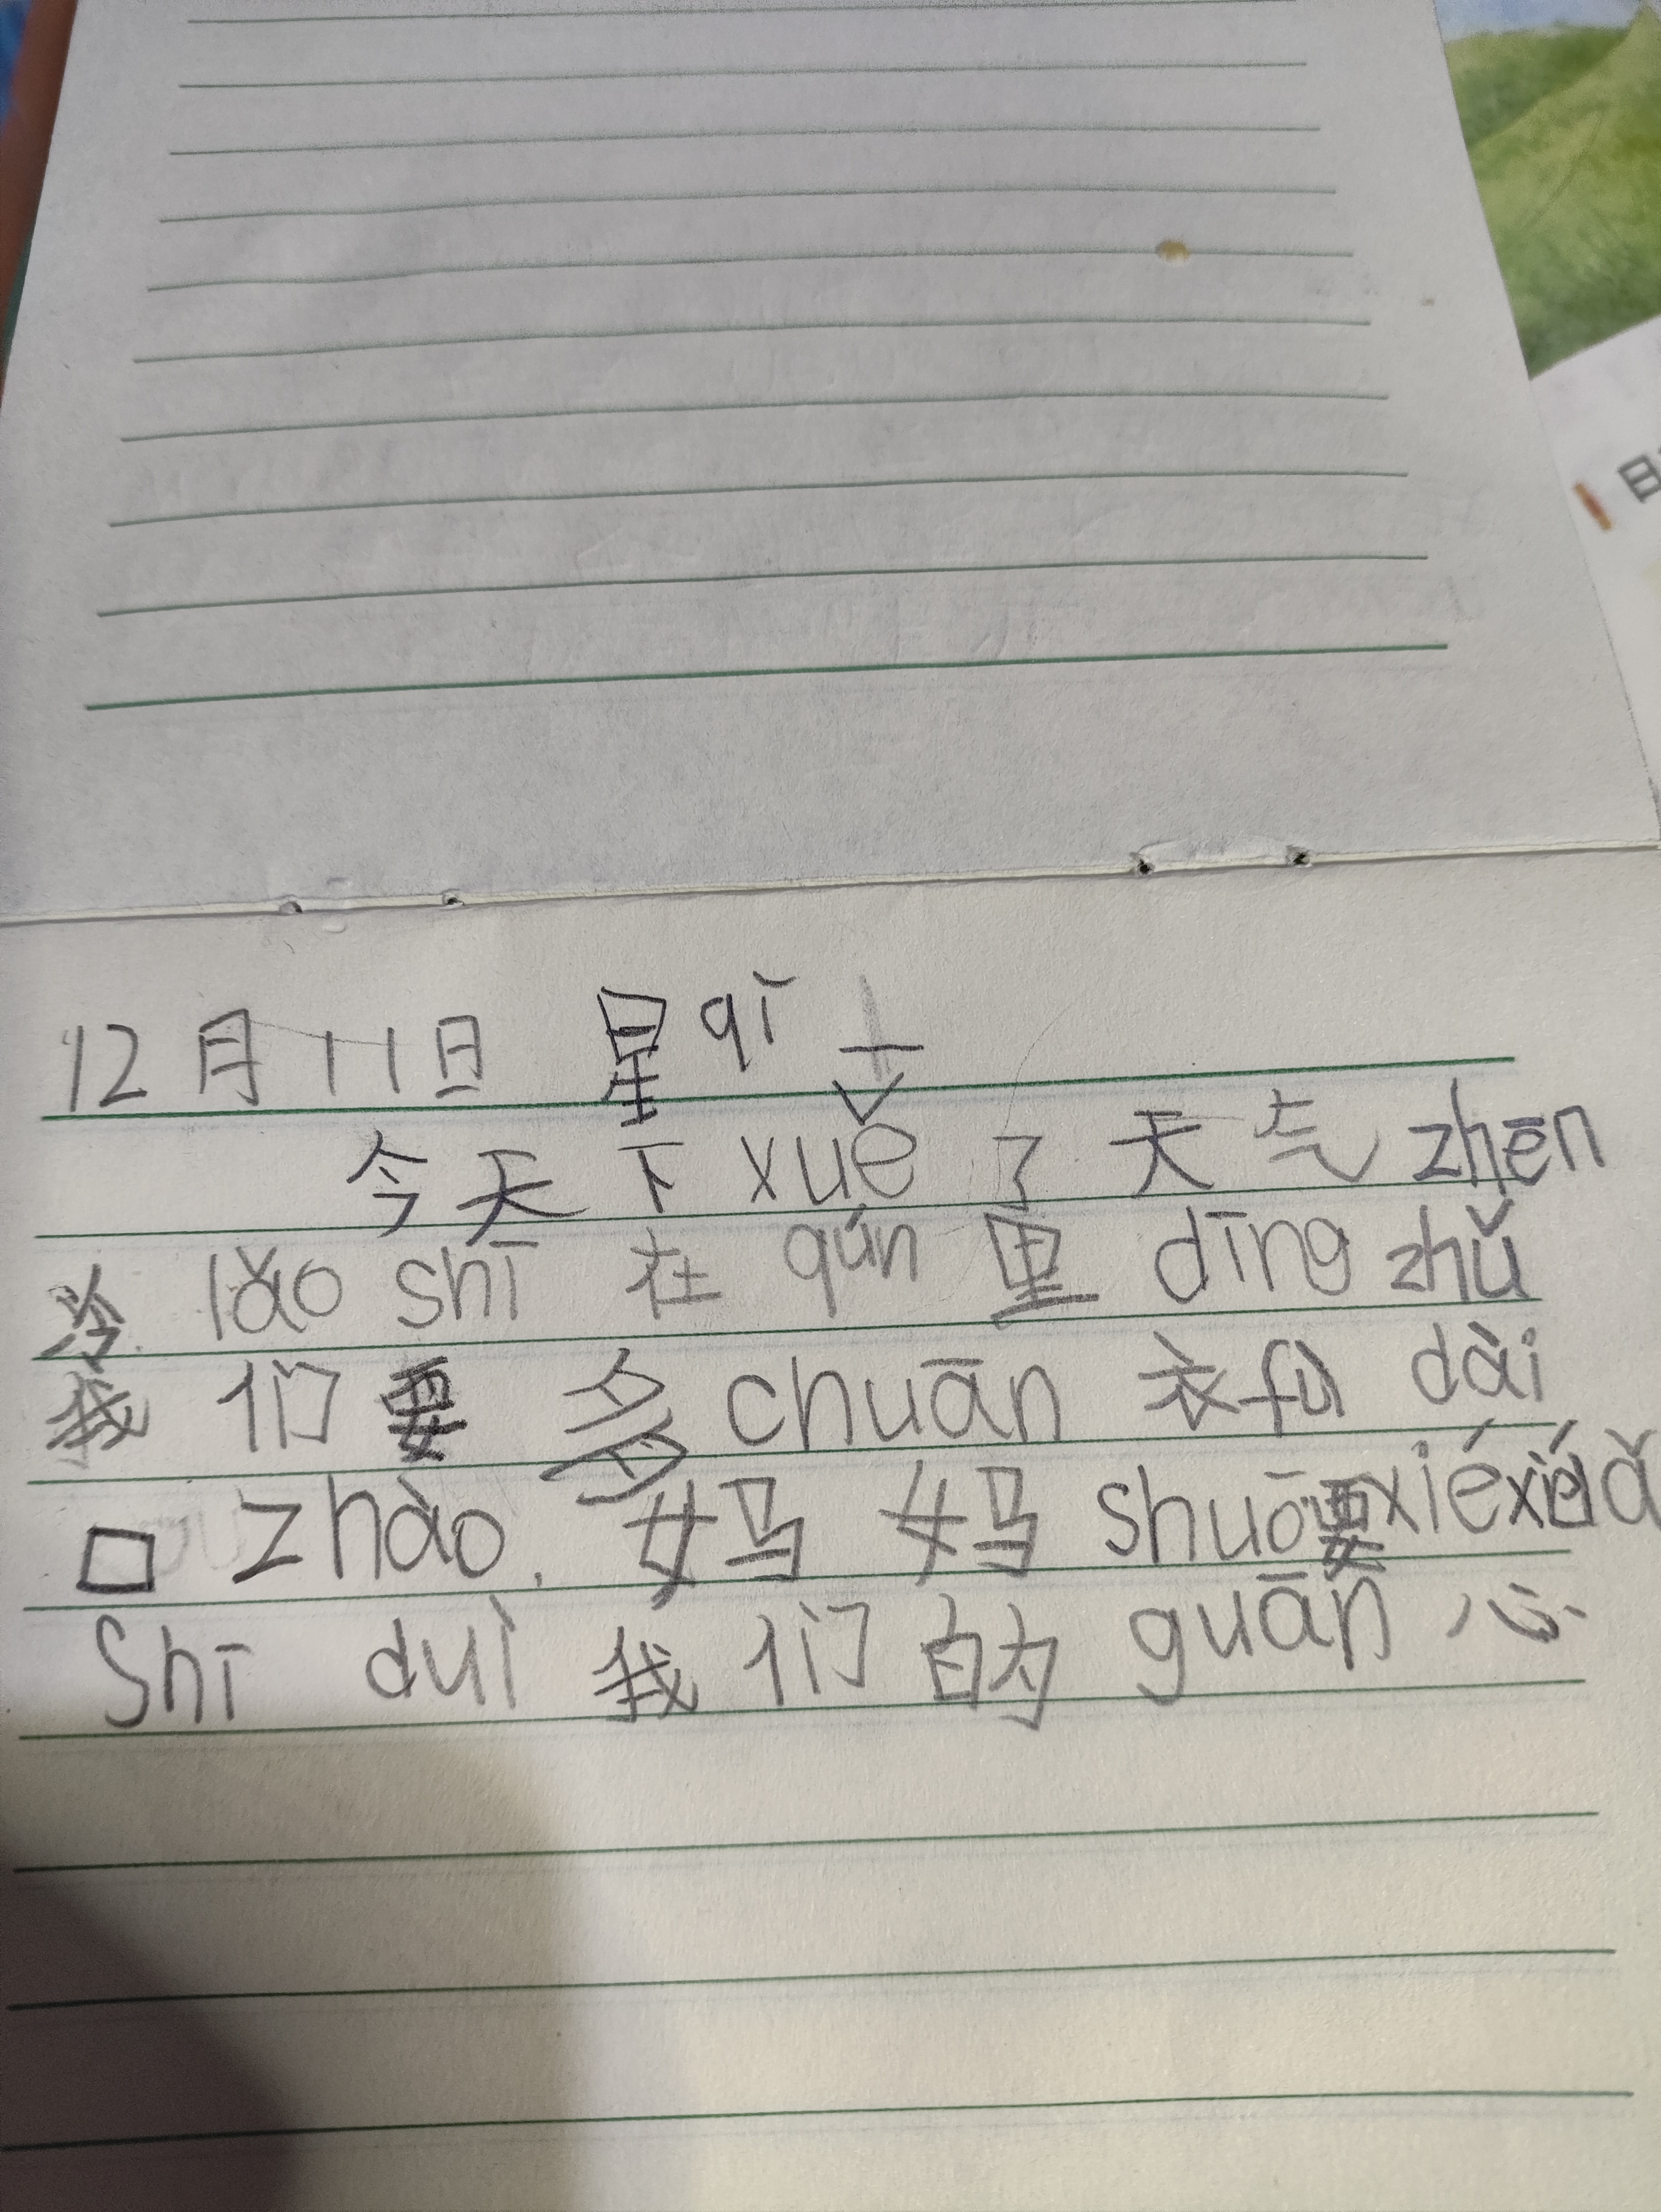 12月11日 星qī
今天下xuě了天气zhēn
冷lǎo shī在qún里dīng zhǔ
我们要多chuān衣fú dài
口zhào. 妈妈shuō要xiéxiélǎ
Shī duì我们的guān心
日